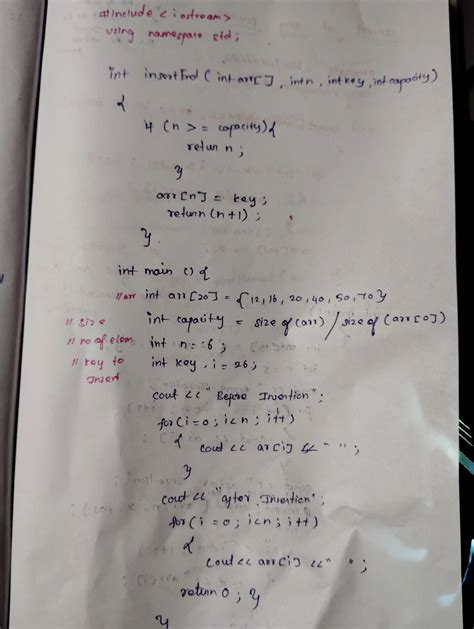 #include <iostream>
using namespace std;
int insertEnd ( int arr[], int n, int key, int capacity)
{
if (n >= capacity){
return n;
}
arr[n] = key;
return (n+1);
}
int main () {
//arr int arr[20] = {12, 16, 20, 40, 50, 70}
// size int capacity = size of (arr) / size of (arr[0])
// no of elem int n = 6;
// key to int key, i = 26;
Insert
cout << "Before Insertion";
for(i = 0; i<n; i++)
{ cout << ar[i] << " ";
}
cout << "after Insertion";
for(i = 0; i<n; i++)
{
cout << arr[i] << " ";
return 0; }
}